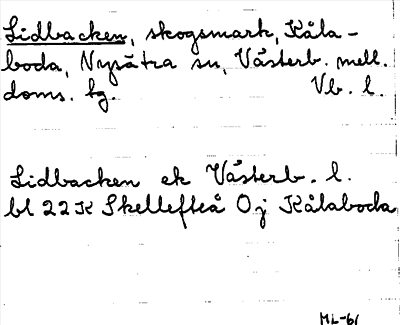 Lidbacken, skogsmark, Kåla-
boda, Nysätra sn, Västerb. mell.
doms. tg. Vb. l.
Lidbacken ek Västerb. l.
bl 22K Skellefteå Oj Kålaboda
ML-61